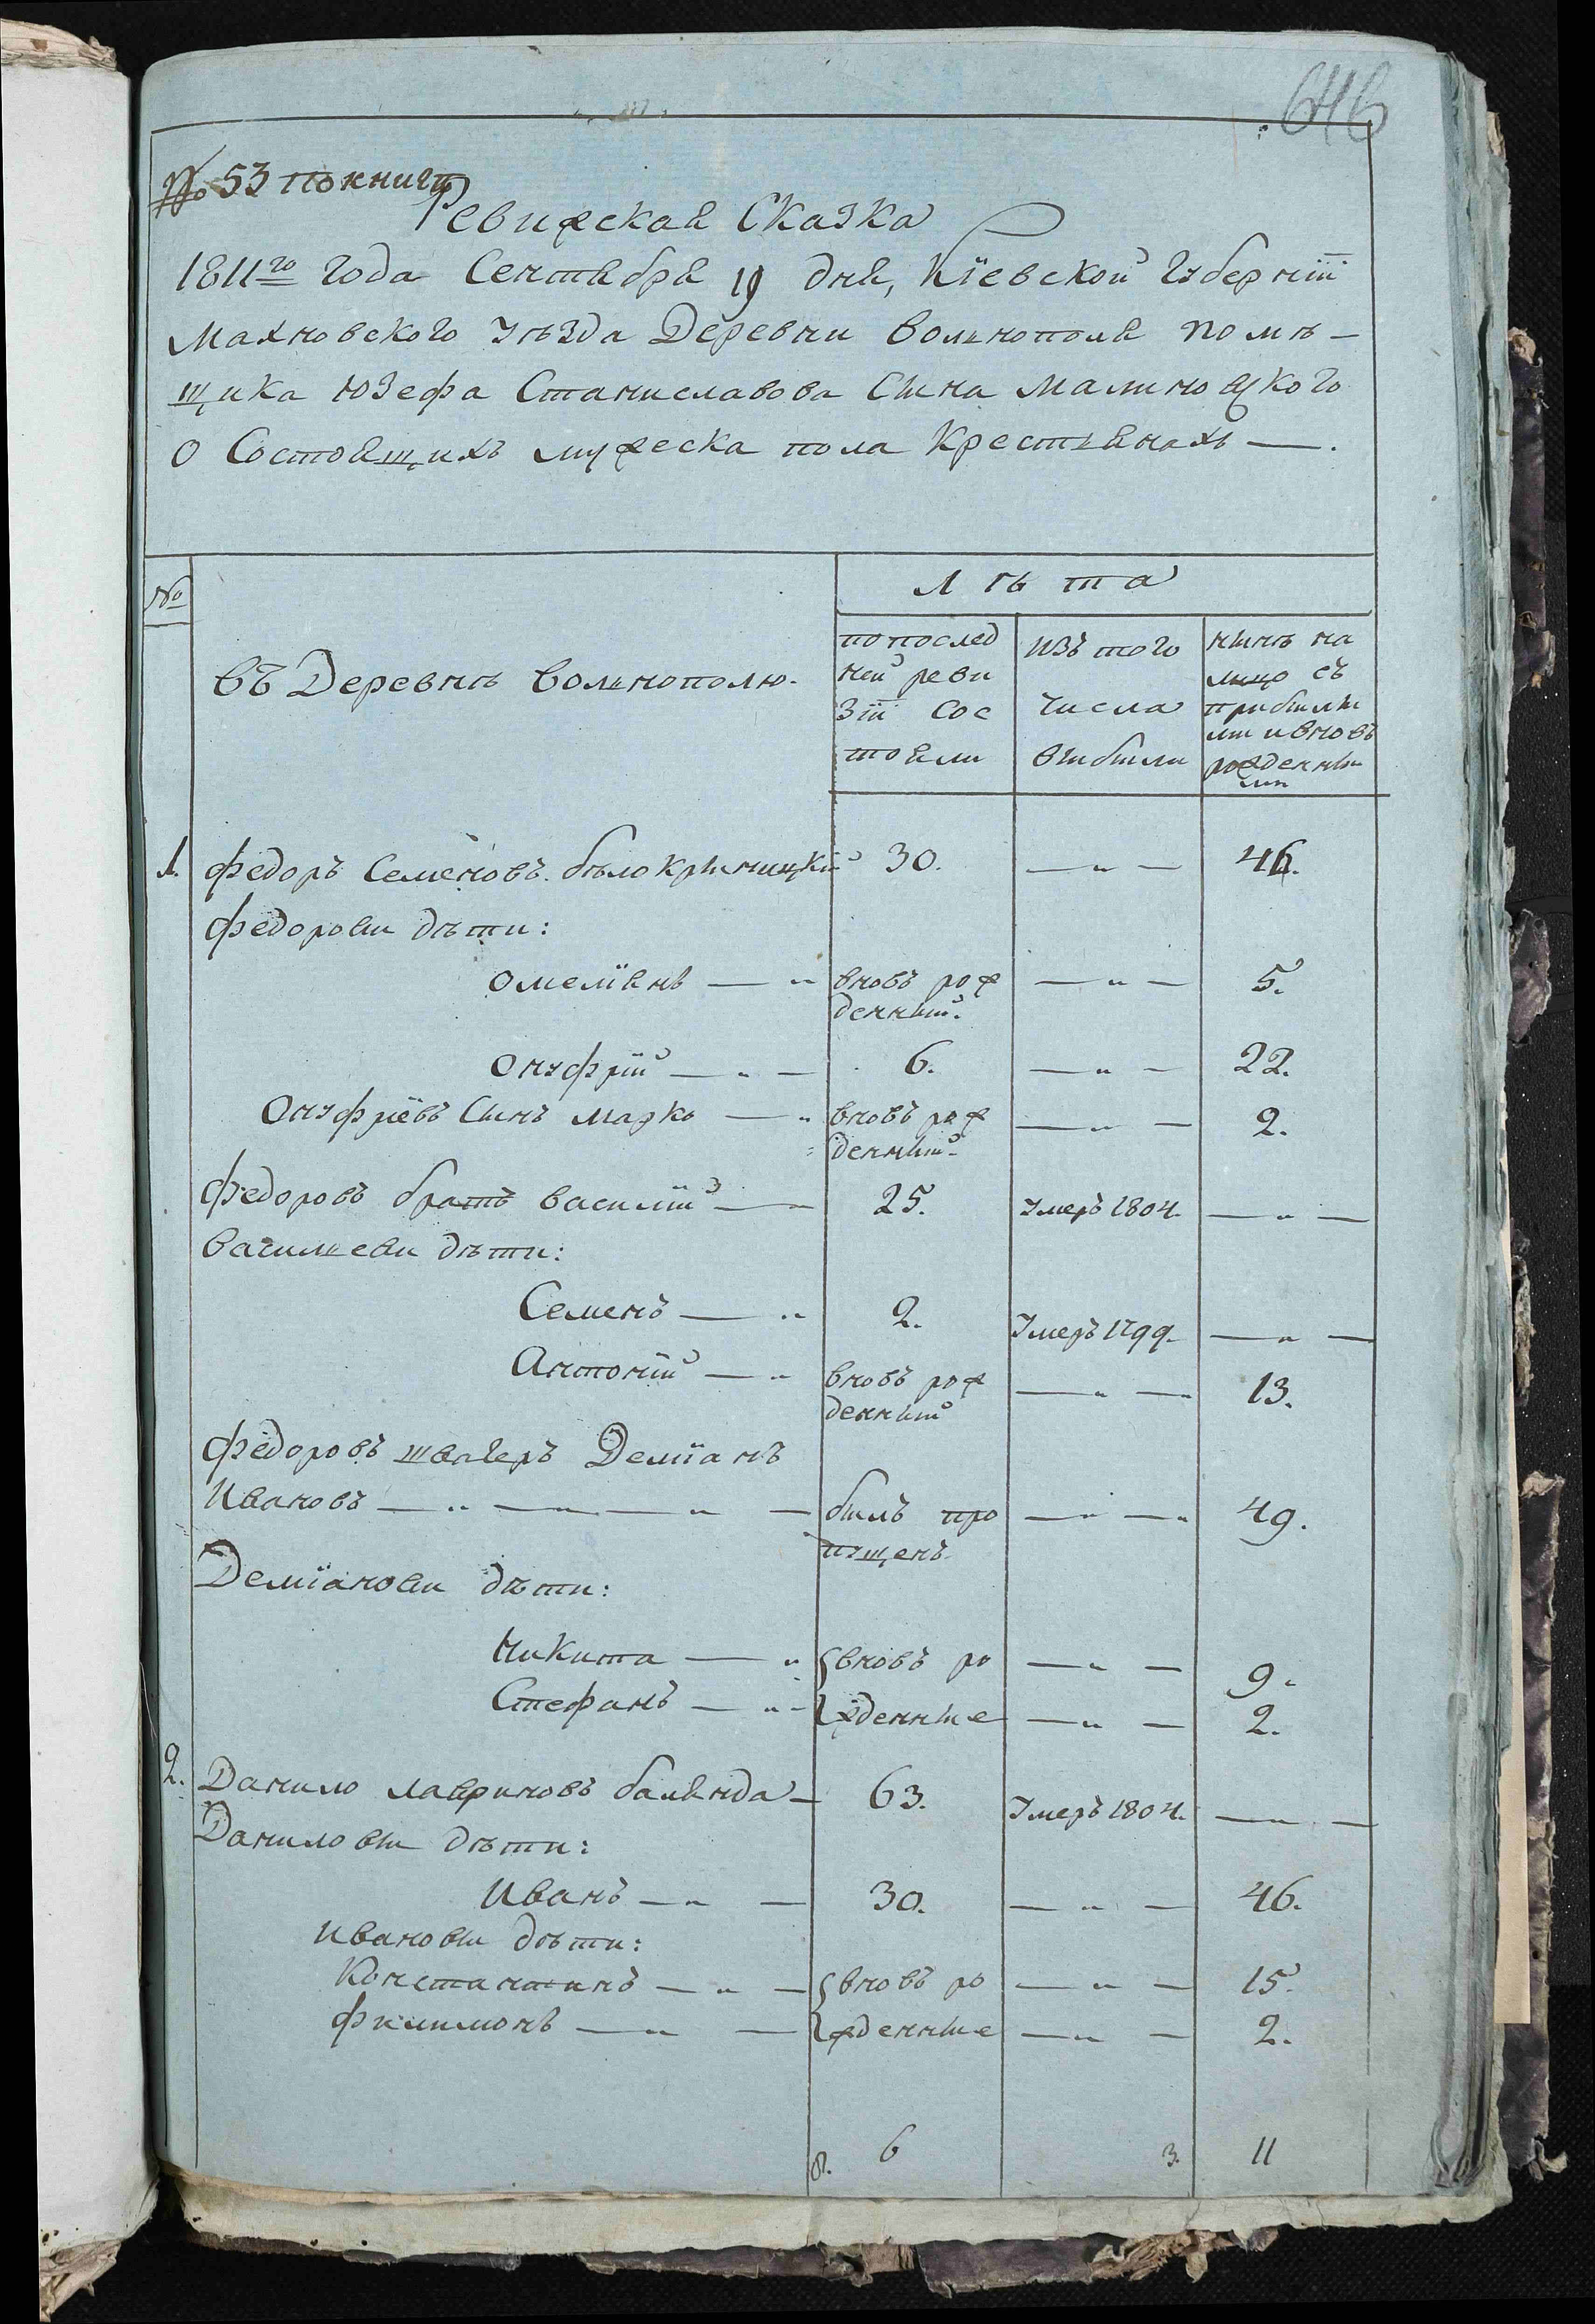 646
№ 53 по книгѣ
Ревижская Сказка
1811го года Сентября 19 дня, Кїевской Губернїи
Махновского уѣзда Деревни Вольнополя помѣ-
щика Юзефа Станиславова Сына Малиновского
О Состоящихъ мужеска пола Крестьянахъ —.
№
Лѣта
въ Деревнѣ Вольнополю.
по послед
ней реви
зїи Сос
тояли
изъ того
Числа
выбыли
нынѣ на
лицо съ
прибылы
ми и вновь
рожденны
ми
1. Федоръ Семеновъ Бѣлокрыницкїй 30. — „ — 46.
Федоровы дѣти:
Омелїянъ — „ вновь рож — „ — 5.
денный.
Онуфрїй — „ — 6. — „ — 22.
Онуфрїевъ Сынъ Марко — „ вновь рож — „ — 2.
денный.
Федоровъ братъ Василїй — „ 25. Умеръ 1804. — „ —
Васильевы дѣти:
Семенъ — „ 2. Умеръ 1799. — „ —
Антонїй — „ вновь рож — „ — 13.
денный
Федоровъ швагеръ Демїанъ
Ивановъ — „ — „ — „ — былъ про — „ — „ 49.
пущенъ.
Демїановы дѣти:
Никита — „ вновь ро — „ — 9.
Стефанъ — „ — жденные — „ — 2.
2. Данило Лавриновъ Балянда — 63. Умеръ 1804. — „ —
Даниловы дѣти:
Иванъ — „ — 30. — „ — 46.
Ивановы дѣти:
Константинъ — „ — вновь ро — „ — 15.
Филимонъ — „ — жденные — „ — 2.
8. 6 3. 11